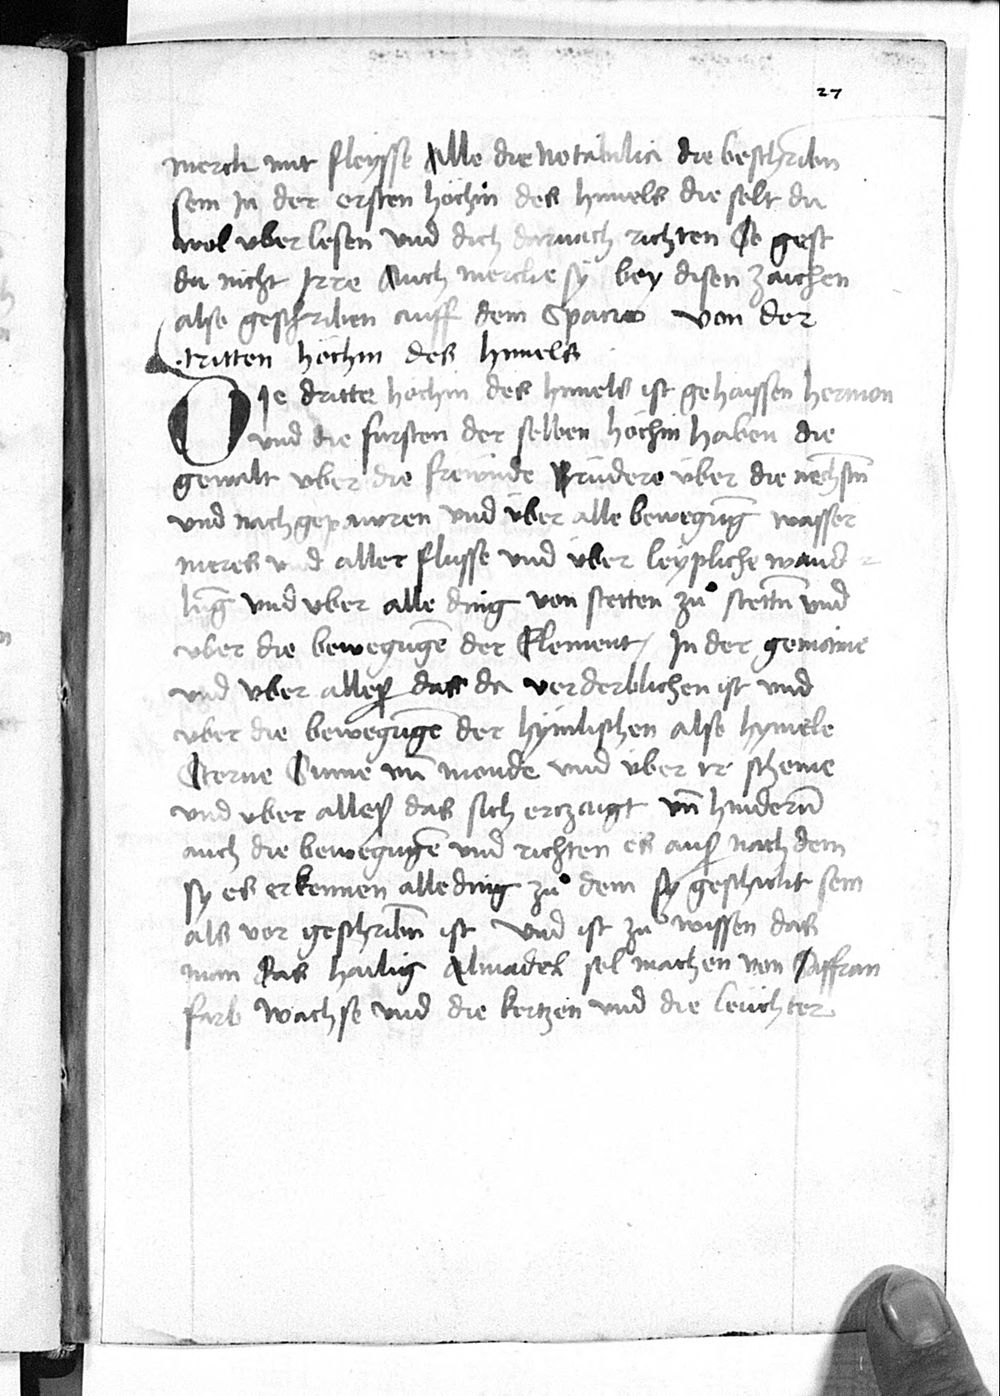 27
merch mit fleysse Alle die Notabilia die beschriben
sein In der ersten höchin des himels die solt du
wol vber lesen vnd dich darnach richten So gest
du nicht Irre Auch merche sy bey disen zaichen
also geschriben auff dem Spacio von der
tritten höchin des himels
DIe dritte höchin des himels ist gehaissen hermon
vnd die fursten der selben höchin haben die
gewalt vber die freünde Brüdere über die nechstn̄
vnd nachgepawren vnd über alle bewegūg wasser
meres vnd aller flusse vnd über leypliche wand
lūg vnd vber alle ding von stetten zů stettn̄ vnd
vber die bewegūgē der Element In der gemaine
vnd vber alles das da verderblichen ist vnd
vber die bewegūgē der hymlischen also hymele
Sterne Sunne vn̄ monde vnd über ir scheine
vnd vber alles das sich erczaigt vn̄ hindern̄
auch die bewegūgē vnd richten es aus nach dem
sy es erkennen alle ding zů dem sy geschickt sein
als vor geschribn̄ ist Vnd ist zů wissen das
man das hailig Almadel sol machen von Saffran
farb wachse vnd die kertzen vnd die leüchter